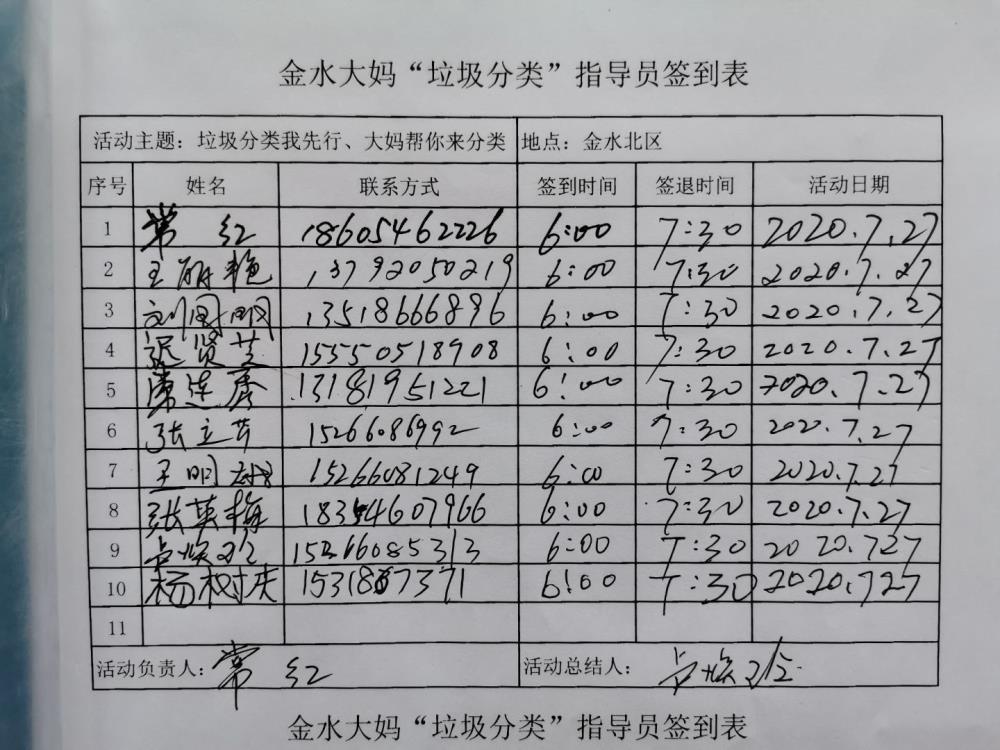 金水大妈“垃圾分类”指导员签到表
活动主题：垃圾分类我先行、大妈帮你来分类 地点：金水北区
序号 姓名 联系方式 签到时间 签退时间 活动日期
1 常红 18605462226 6:00 7:30 2020.7.27
2 王丽艳 13792050219 6:00 7:30 2020.7.27
3 刘国明 13518666896 6:00 7:30 2020.7.27
4 迟贤芝 15550518908 6:00 7:30 2020.7.27
5 常连秀 13181951221 6:00 7:30 2020.7.27
6 张立芳 15266086992 6:00 7:30 2020.7.27
7 王明 15266081249 6:00 7:30 2020.7.27
8 张英梅 18354607966 6:00 7:30 2020.7.27
9 15266085313 6:00 7:30 2020.727
10 杨树庆 6:00 7:30 2020.727
11
活动负责人：常红 活动总结人：
金水大妈“垃圾分类”指导员签到表